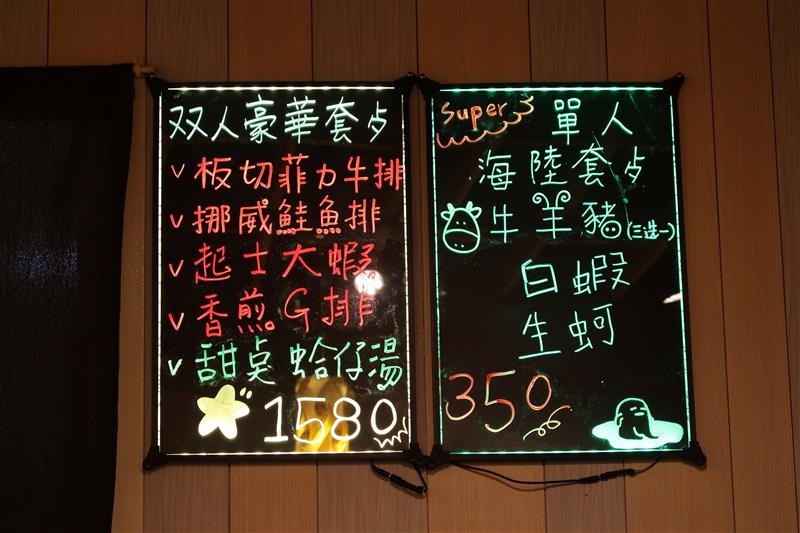 双人豪華套歺
v 板切菲力牛排
v 挪威鮭魚排
v 起士大蝦
v 香煎G排
v 甜桌 蛤仔湯
1580
Super 單人
海陸套歺
牛羊豬(三选一)
白蝦
生蚵
350